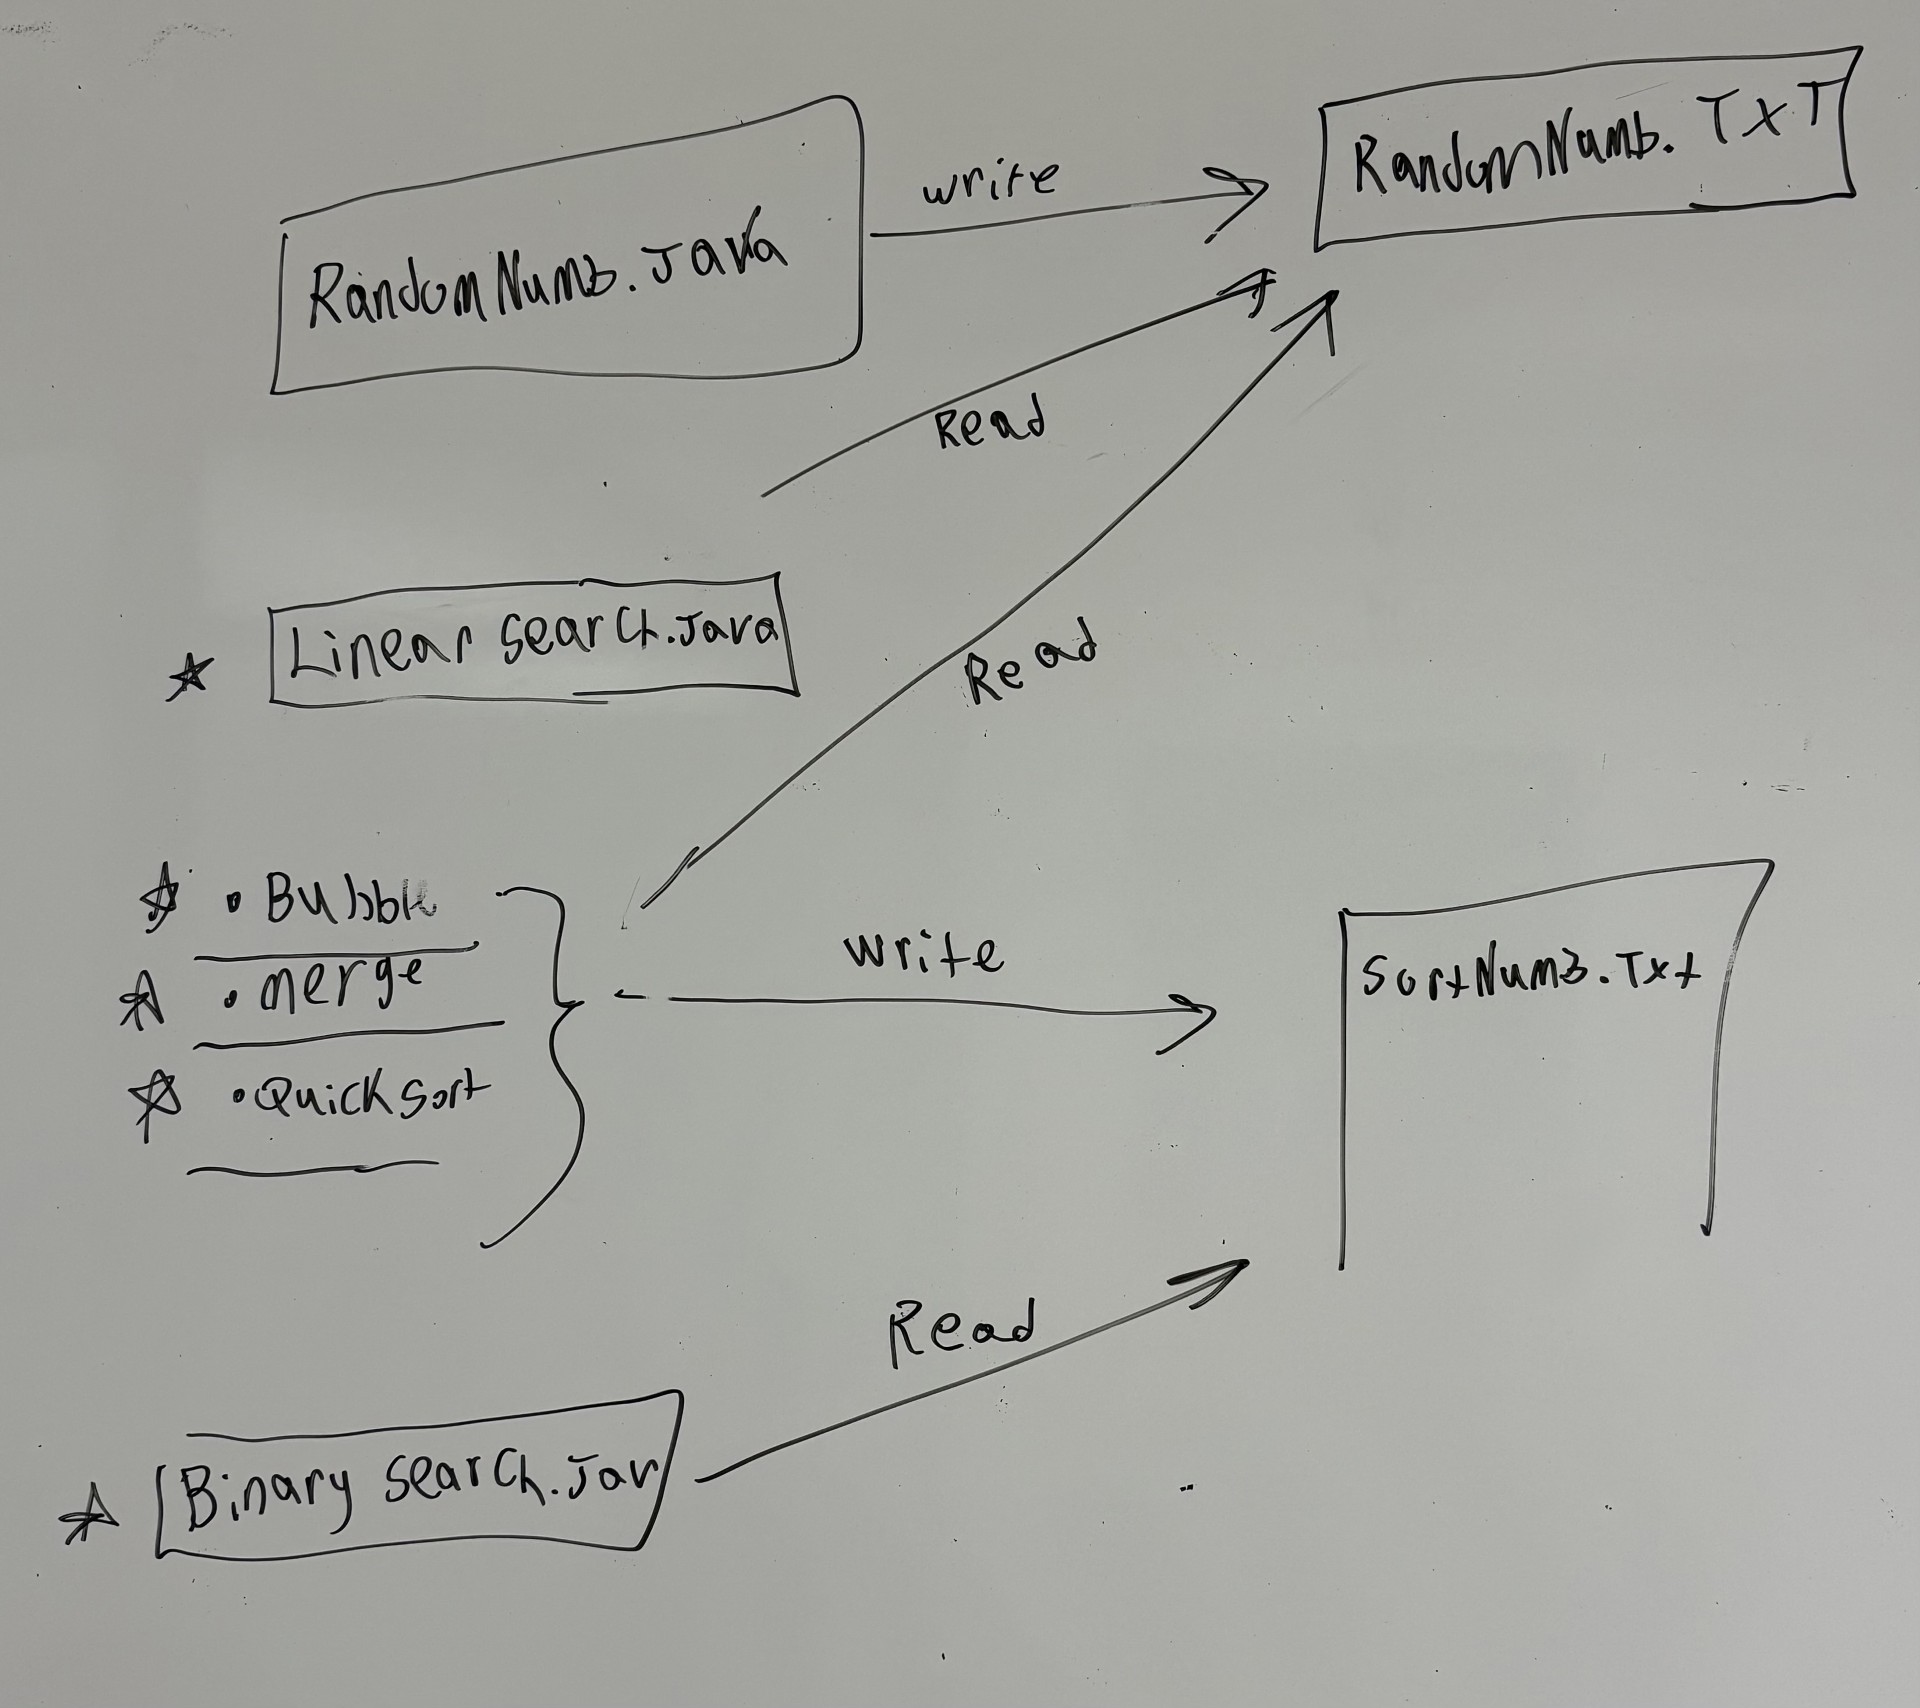 RandomNumb.Java
write
RandomNumb.TxT
Read
Linear search.Java
Read
• Bubble
• merge
• Quick Sort
write
SortNumb.Txt
Read
Binary search.Jav